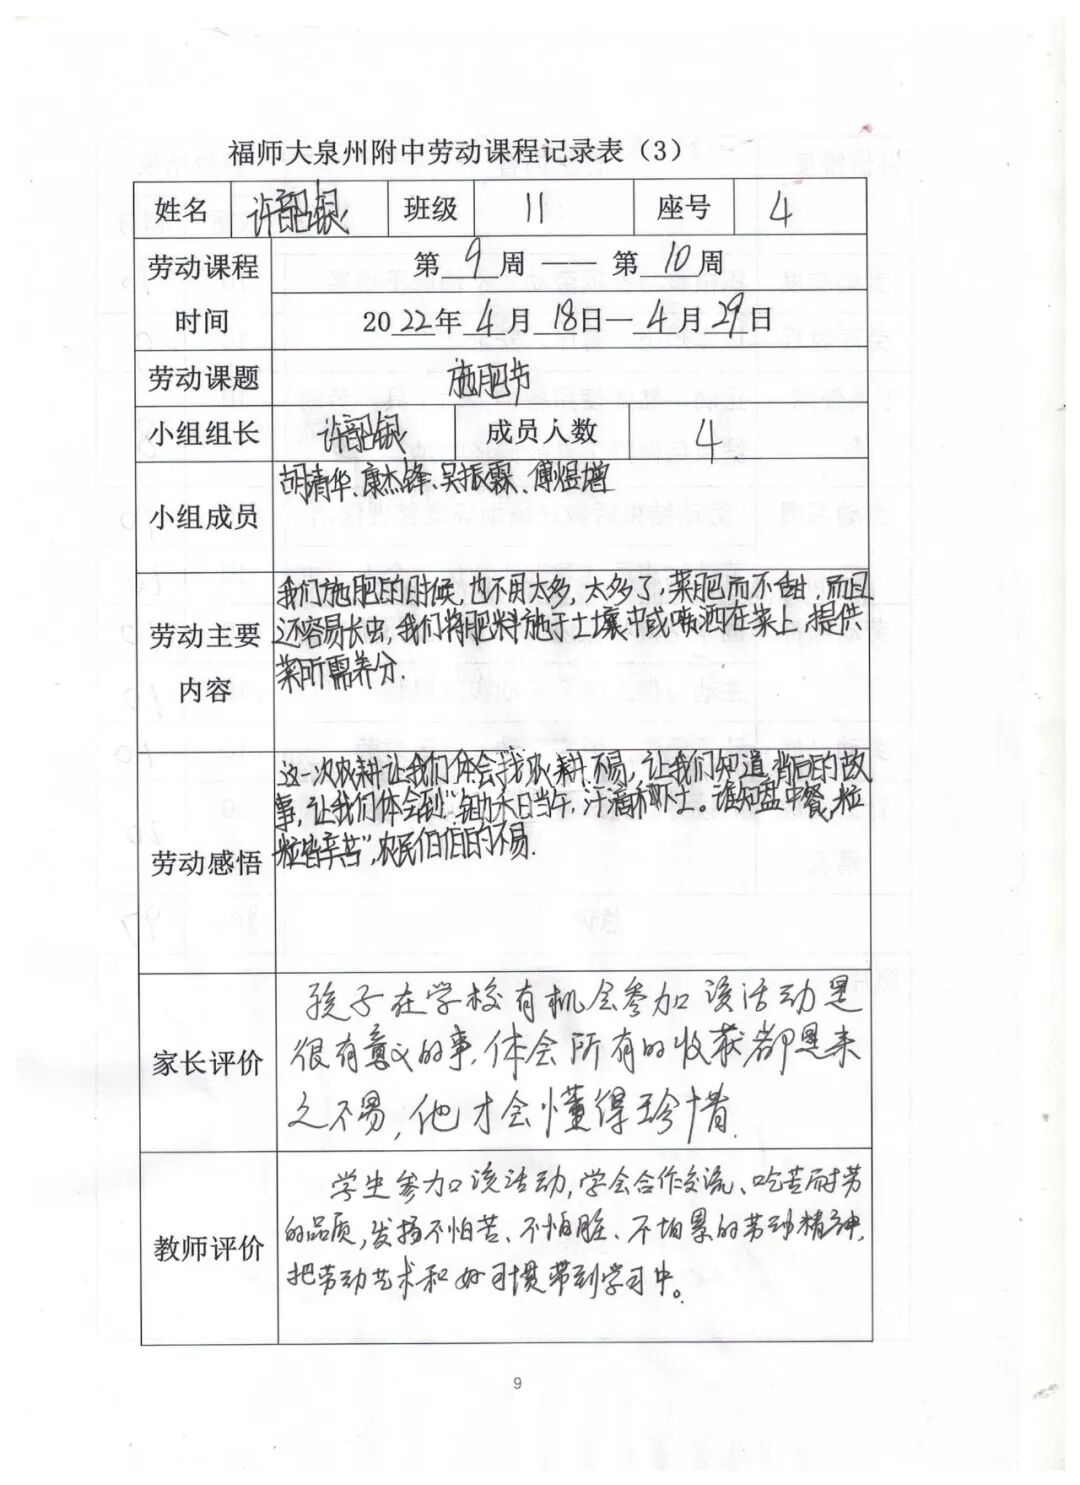 福师大泉州附中劳动课程记录表（3）
姓名 许韶银 班级 11 座号 4
劳动课程时间 第 9 周 —— 第 10 周
2022年 4 月 18日— 4 月 29日
劳动课题 施肥节
小组组长 许韶银 成员人数 4
小组成员 胡清华、康杰锋、吴振霖、傅煜增
劳动主要内容
我们施肥的时候,也不用太多,太多了,菜肥而不甜,而且
还容易长虫,我们将肥料施于土壤中或喷洒在菜上,提供
菜所需养分.
劳动感悟
这一次农耕让我们体会找农耕不易,让我们知道背后的故
事,让我们体会到“锄禾日当午,汗滴禾下土。谁知盘中餐,粒
粒皆辛苦”,农民伯伯的不易.
家长评价
孩子在学校有机会参加该活动是
很有意义的事,体会所有的收获都是来
之不易,他才会懂得珍惜.
教师评价
学生参加该活动,学会合作交流、吃苦耐劳
的品质,发扬不怕苦、不怕脏、不怕累的劳动精神,
把劳动艺术和好习惯带到学习中。
9